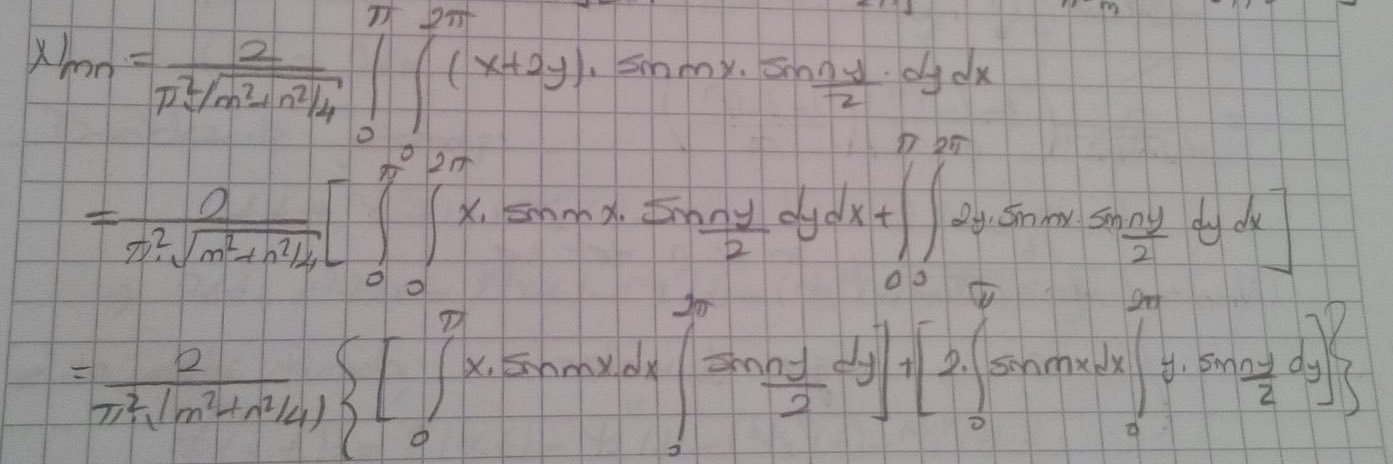 x|mn = 2/(π²·√(m²+n²/4)) ∫₀^π ∫₀^2π (x+2y). sinmx. sin ny/2 . dy dx
= 2/(π²·√(m²+n²/4)) [ ∫₀^π ∫₀^2π x. sinmx. sin ny/2 dy dx + ∫₀^π ∫₀^2π 2y. sinmx. sin ny/2 dy dx ]
= 2/(π²·√(m²+n²/4)) { [ ∫₀^π x. sinmx dx ∫₀^2π sin ny/2 dy ] + [ 2. ∫₀^π sinmx dx ∫₀^2π y. sin ny/2 dy ] }